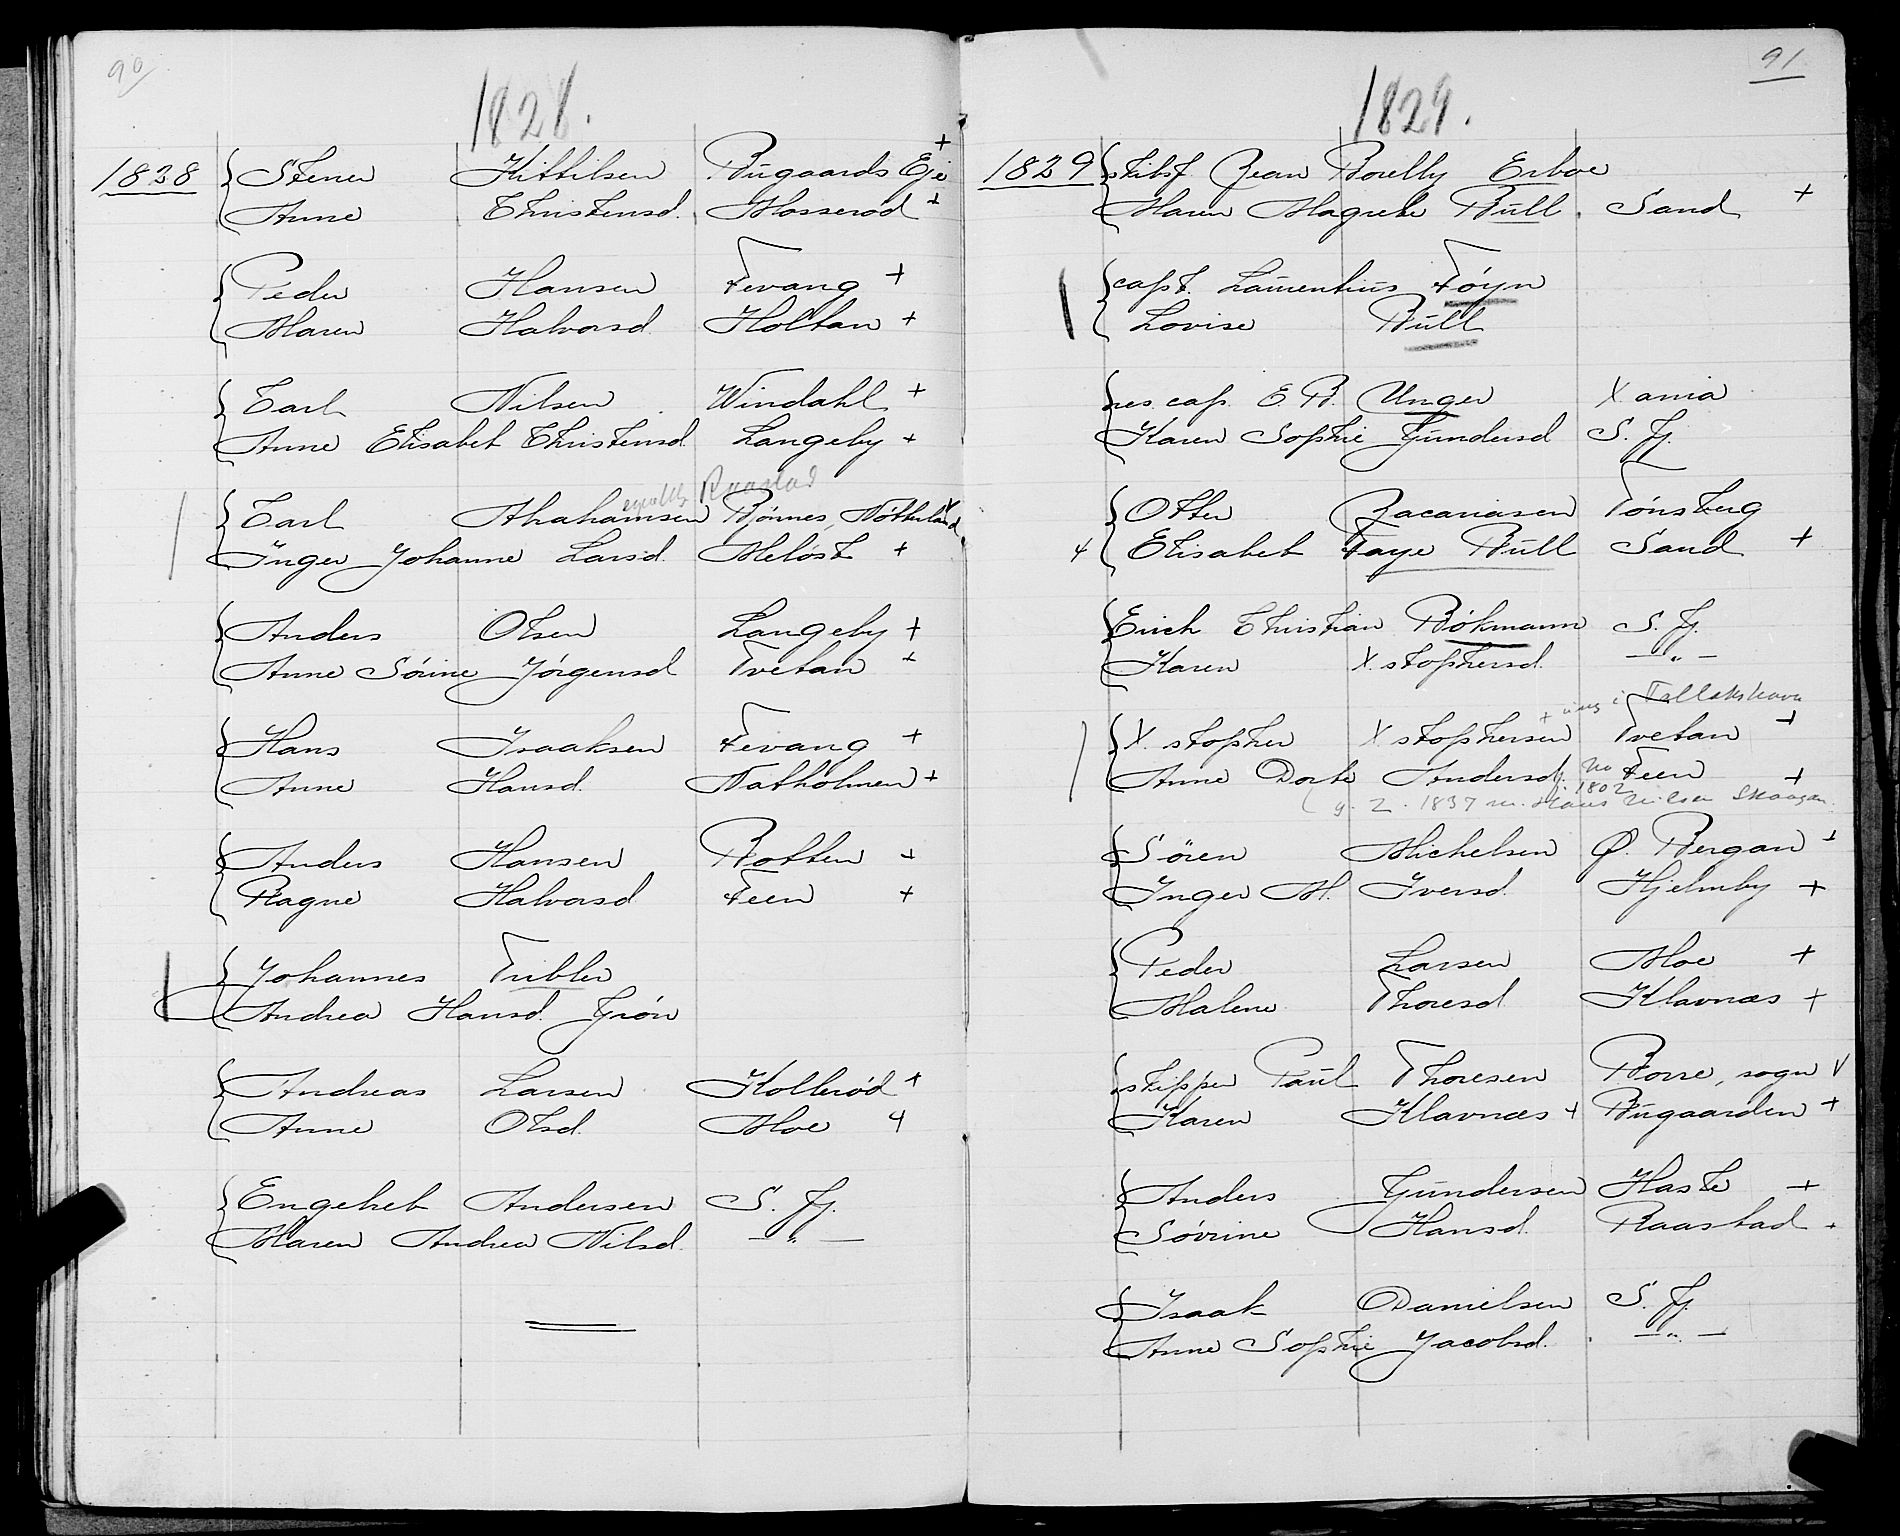 90
1828.
1828 Stener Kittilsen Bugaards Eje +
Anne Christensd. Mosserød +
Peder Hansen Fevang +
Maren Halvorsd. Holtan +
Carl Nilsen Windahl +
Anne Elisabet Christensd. Langeby +
Raastad
Carl Abrahamsen Bjønnes, Nøtterland
Inger Johanne Larsd. Meløst +
Anders Olsen Langeby +
Anne Sørine Jørgensd Tvetan +
Hans Isaaksen Fevang +
Anne Hansd. Natholmen +
Anders Hansen Rotten +
Ragne Halvorsd Feen +
Johannes Tribler
Andrea Hansd. Grøn
Andreas Larsen Hollerød +
Anne Olsd. Moe +
Engebet Andersen S. Fj.
Maren Andrea Nilsd. — „ —
91
1829.
1829 skibsf. Jean Borelly Erboe
Maren Magrete Bull. Sand +
capt. Laurentius Føyn
Lovise Bull
res. cap. E. B. Unger X ania
Karen Sophie Gundersd S. Fj.
Otter Zacariasen Tønsberg
+ Elisabet Faye Bull Sand +
Erich Christian Bøkmann S. Fj.
Karen X. stophersd. — „ —
+ i Tallakshavn
X. stopher X stophersen Tvetan +
Anne Dorte Andersd. Feen +
f. 1802
g. 2. 1837 m. Hans Nilsen Skaagan.
Søren Michelsen Ø. Bergan +
Inger M. Iversd. Hjelmby +
Peder Larsen Moe +
Malene Thoresd Klavnæs +
skipper Paul Thoresen Borre, sogn V
Karen Klavnæs + Bugaarden +
Anders Gundersen Haste +
Søvrine Hansd. Raastad +
Isaak Danielsen S. Fj.
Anne Sophie Jacobsd. — „ —